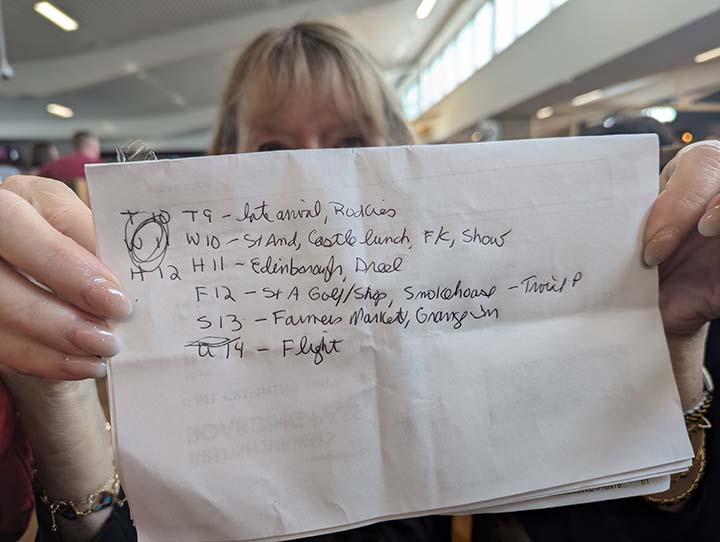 T 10 T 9 - late arrival, Rockies
W 11 W 10 - St And, Castle lunch, FK, Show
H 12 H 11 - Edinborough, Dreel
F 12 - St A Golf/Shop, Smokehouse - Twist P
S 13 - Farmers Market, Grange Inn
U 14 - Flight
BOARDING PASS
1/1